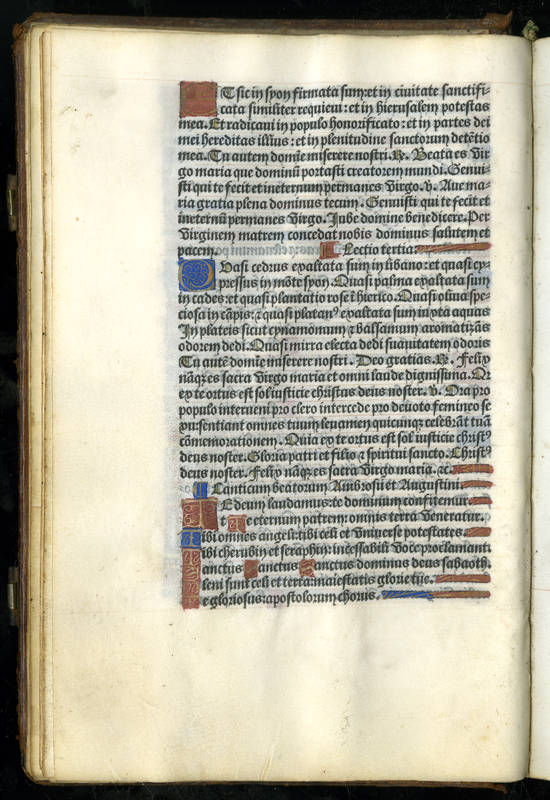 ET sic in syon firmata sum: et in ciuitate sanctifi-
cata similiter requieui: et in hierusalem potestas
mea. Et radicaui in populo honorificato: et in partes dei
mei hereditas illius: et in plenitudine sanctorum detētio
mea. Tu autem domīe miserere nostri. R. Beata es vir
go maria que dominū portasti creatorem mundi. Genui-
sti qui te fecit et ineternum permanes virgo. v. Aue ma-
ria gratia plena dominus tecum. Genuisti qui te fecit et
ineternū permanes virgo. Jube domine benedicere. Per
virginem matrem concedat nobis dominus salutem et
pacem. Lectio tertia.
Quasi cedrus exaltata sum in libano: et quasi cy-
pressus in mōte syon. Quasi palma exaltata sum
in cades: et quasi plantatio rose ī hierico. Quasi oliua spe-
ciosa in cāpis: et quasi platanꝰ exaltata sum iuxta aquas
In plateis sicut cynamomum et balsamum aromatizās
odorem dedi. Quasi mirra electa dedi suauitatem odoris
Tu autē domīe miserere nostri. Deo gratias. R. Felix
nāqꝫ es sacra virgo maria et omni laude dignissima. Qr
ex te ortus est sol iusticie christus deus noster. v. Ora pro
populo interueni pro clero intercede pro deuoto femineo se
xu: sentiant omnes tuum leuamen quicunqꝫ celebrāt tuā
cōmemorationem. Quia ex te ortus est sol iusticie christꝰ
deus noster. Gloria patri et filio et spiritui sancto. Christꝰ
deus noster. Felix nāqꝫ es sacra virgo maria. ⁊c.
Canticum beatorum Ambrosii et Augustini.
TE deum laudamus: te dominum confitemur.
Te eternum patrem: omnis terra veneratur.
Tibi omnes angeli: tibi celi et vniuerse potestates.
Tibi cherubin et seraphin: incessabili voce proclamant.
Sanctus Sanctus Sanctus dominus deus sabaoth.
Pleni sunt celi et terra: maiestatis glorie tue.
Te gloriosus: apostolorum chorus.